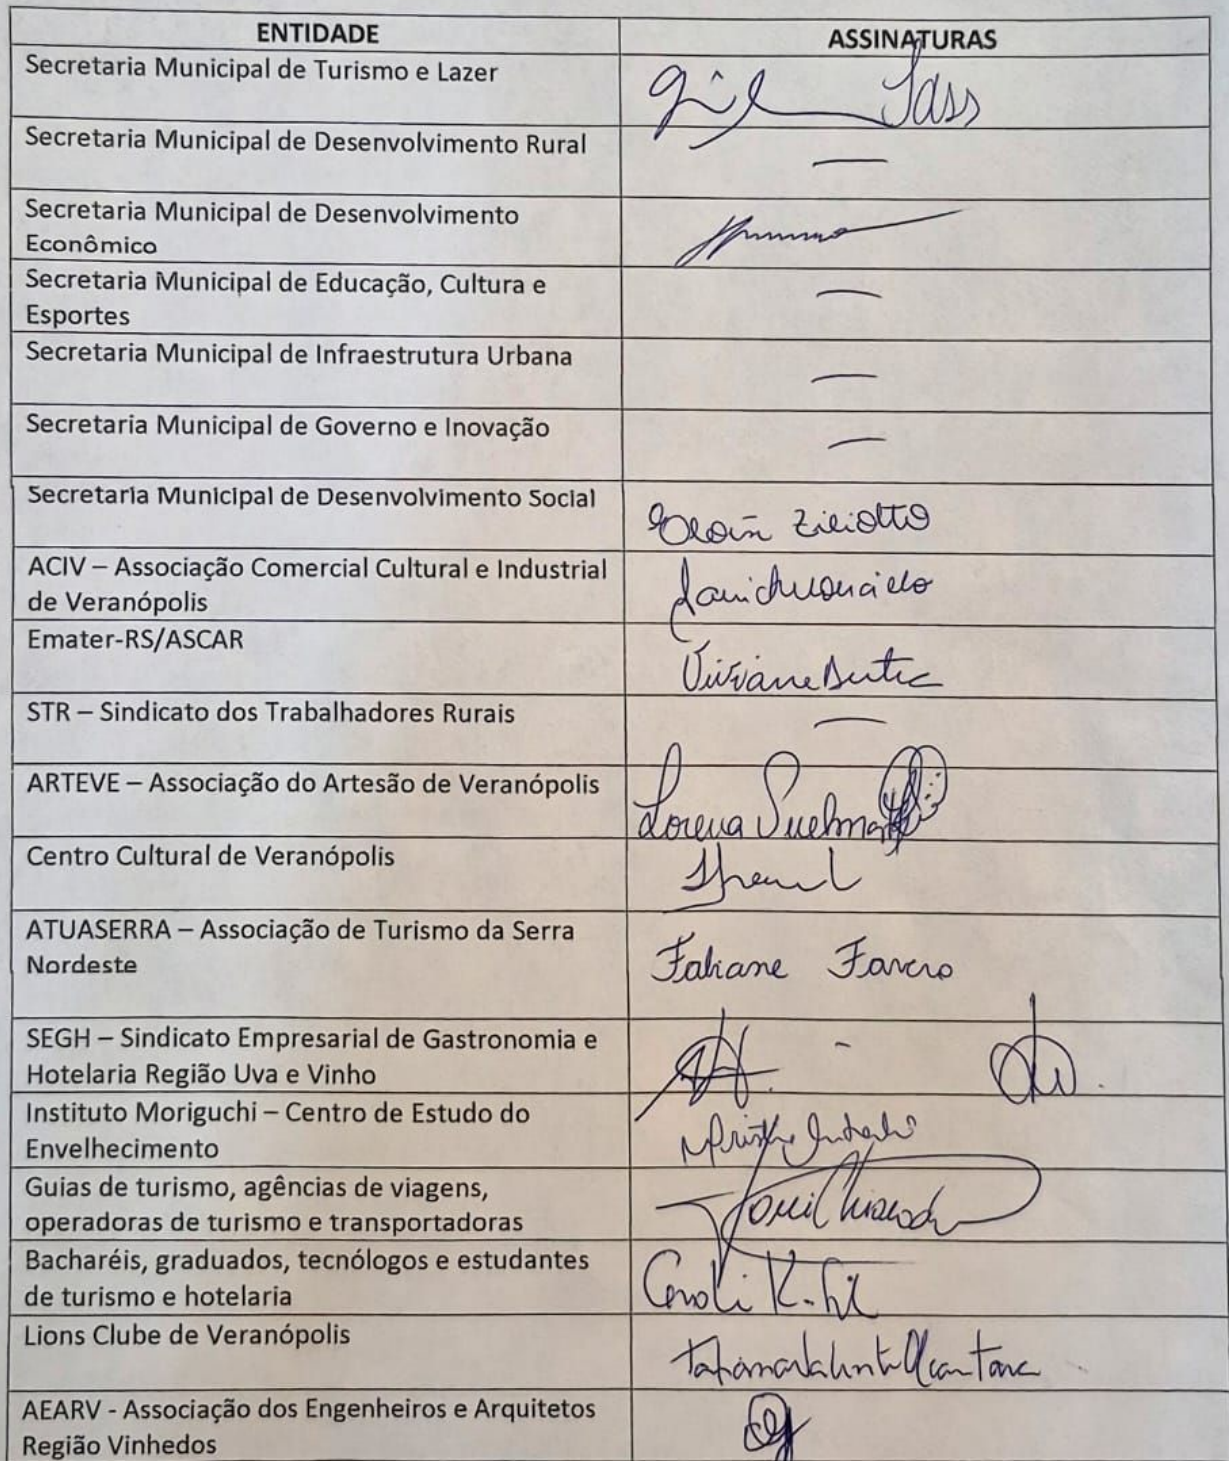 ENTIDADE ASSINATURAS
Secretaria Municipal de Turismo e Lazer
Secretaria Municipal de Desenvolvimento Rural —
Secretaria Municipal de Desenvolvimento
Econômico
Secretaria Municipal de Educação, Cultura e —
Esportes
Secretaria Municipal de Infraestrutura Urbana —
Secretaria Municipal de Governo e Inovação —
Secretaria Municipal de Desenvolvimento Social
Ziliotto
ACIV – Associação Comercial Cultural e Industrial
de Veranópolis
Emater-RS/ASCAR
Viviane
STR – Sindicato dos Trabalhadores Rurais —
ARTEVE – Associação do Artesão de Veranópolis
Lorena
Centro Cultural de Veranópolis
ATUASERRA – Associação de Turismo da Serra
Nordeste Fabiane Favero
SEGH – Sindicato Empresarial de Gastronomia e
Hotelaria Região Uva e Vinho
Instituto Moriguchi – Centro de Estudo do
Envelhecimento
Guias de turismo, agências de viagens,
operadoras de turismo e transportadoras
Bacharéis, graduados, tecnólogos e estudantes
de turismo e hotelaria
Lions Clube de Veranópolis
AEARV - Associação dos Engenheiros e Arquitetos
Região Vinhedos